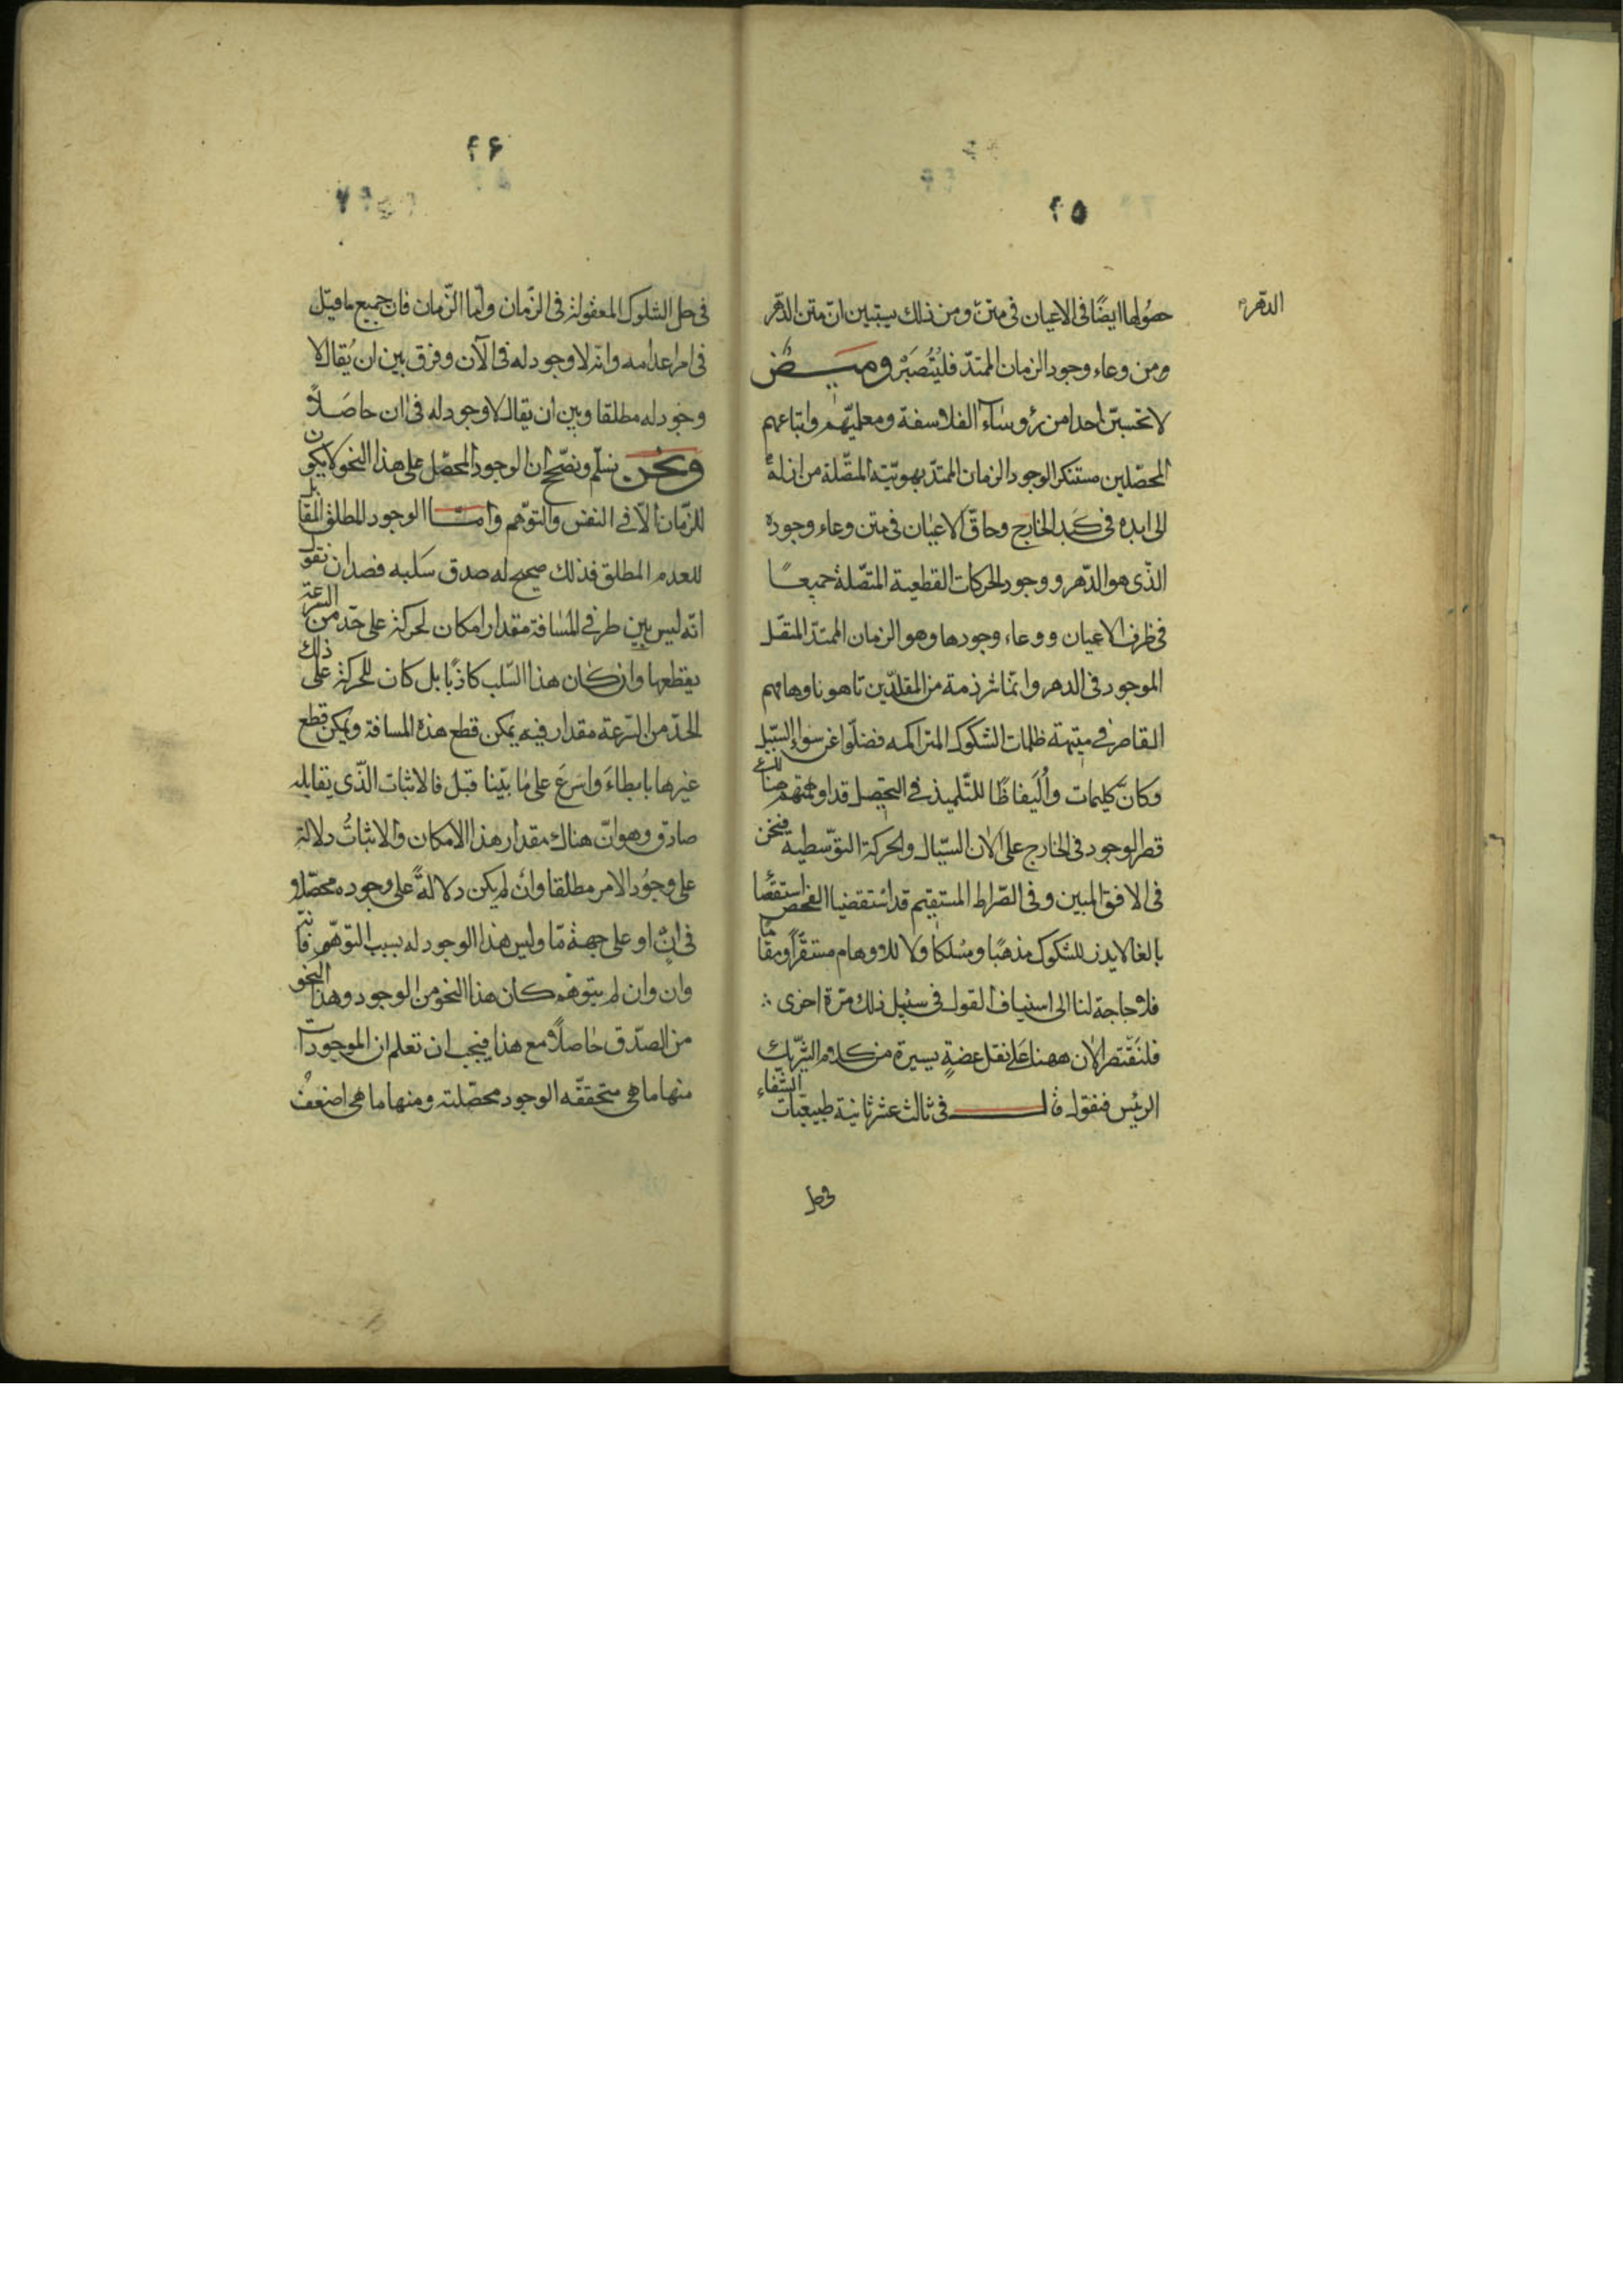 ٢٥
الدهر
حصولها ايضًا فى الاعيان فى متن ومن ذلك يستبين انّ متن الدّهر
ومن وعاء وجود الزمان الممتدّ فليُتبصّر وميـــض
لا تحسبنّ احدا من رؤوساء الفلاسفة ومعلميّهم واتباعهم
المحصّلين مستنكر الوجود الزمان الممتدّ بهويّته المتّصلة من ازله
الى ابده فى كبد الخارج وحاقّ الاعيان فى متن وعاء وجوده
الذّى هو الدّهر ووجود الحركات القطعية المتّصلة جميعًا
فى ظرف الاعيان ووعاء وجودها وهو الزمان الممتدّ المتصل
الموجود فى الدهر وانّما شرذمة من المقلّدين تاهوا باوهامهم
القاصر فى متيهة ظلمات الشكوك المتراكمه فضلّوا عن سواء السّبيل
وكان كليمات وأُلَيفاظًا للتّلميذ فى التحصيل قد اوهمتهم هنالك
قصر الوجود فى الخارج على الآن السيّال والحركة التوّسطيه فنحن
فى الافق المبين وفى الصّراط المستقيم قد استقضينا الفحص استقصًا
بالغا لا يذر للشكوك مذهبًا ومسلكا ولا للاوهام مستقرًّا ومقامًا
فلا حاجة لنا الى استيناف القول فى سبيل ذلك مرّة اخرى ∴
فلنقتصر الآن ههنا على نقل عضةٍ يسيرة من كلام الشّريك
الرئيس فنقول قال فى ثالث عشر ثانية طبيعيّات الشفاء
فى حل
٢٦
فى حل الشكوك المعقولة فى الزّمان وامّا الزّمان فان جميع ما قيل
فى امر اعدامه وانّه لا وجود له فى الآن وفرق بين ان يُقال لا
وجود له مطلقا وبين ان يقال لا وجود له فى ان حاصَلاً
ونحن نسلّم ونصّحح ان الوجود المحصّل على هذا النحو لا يكون
للزّمان الّا فى النفس والتوهّم وامّـــا الوجود المطلق المقابل
للعدم المطلق فذلك صحيح له صدق سَلبه فصدق ان نقول
انّه ليس بين طرفى المسافة مقدار امكان لحركة على حدّ من السرعة
يقطعها وان كان هذا السّلب كاذبًا بل كان للحركة على ذلك
الحدّ من السّرعة مقدار فيه يمكن قطع هذه المسافة ويمكن قطع
غيرها بابطاءَ واسرعَ على ما بيّنا قبل فالاثبات الذّى يقابله
صادق وهو انّ هناك مقدار هذا الامكان والاثباتُ دلالة
على وجُود الامر مطلقا وان لم يكن دلالةً على وجوده محصّلا
فى انٍ او على جهة مّا وليس هذا الوجود له بسبب التوهّم فانّه
وان لم يتوهم كان هذا النحو من الوجود وهذا النحو
من الصدّق حاصلاً ومع هذا فيجب ان تعلم ان الموجودات
منها ما هى متحققّه الوجود محصّلته ومنها ما هى اضعف